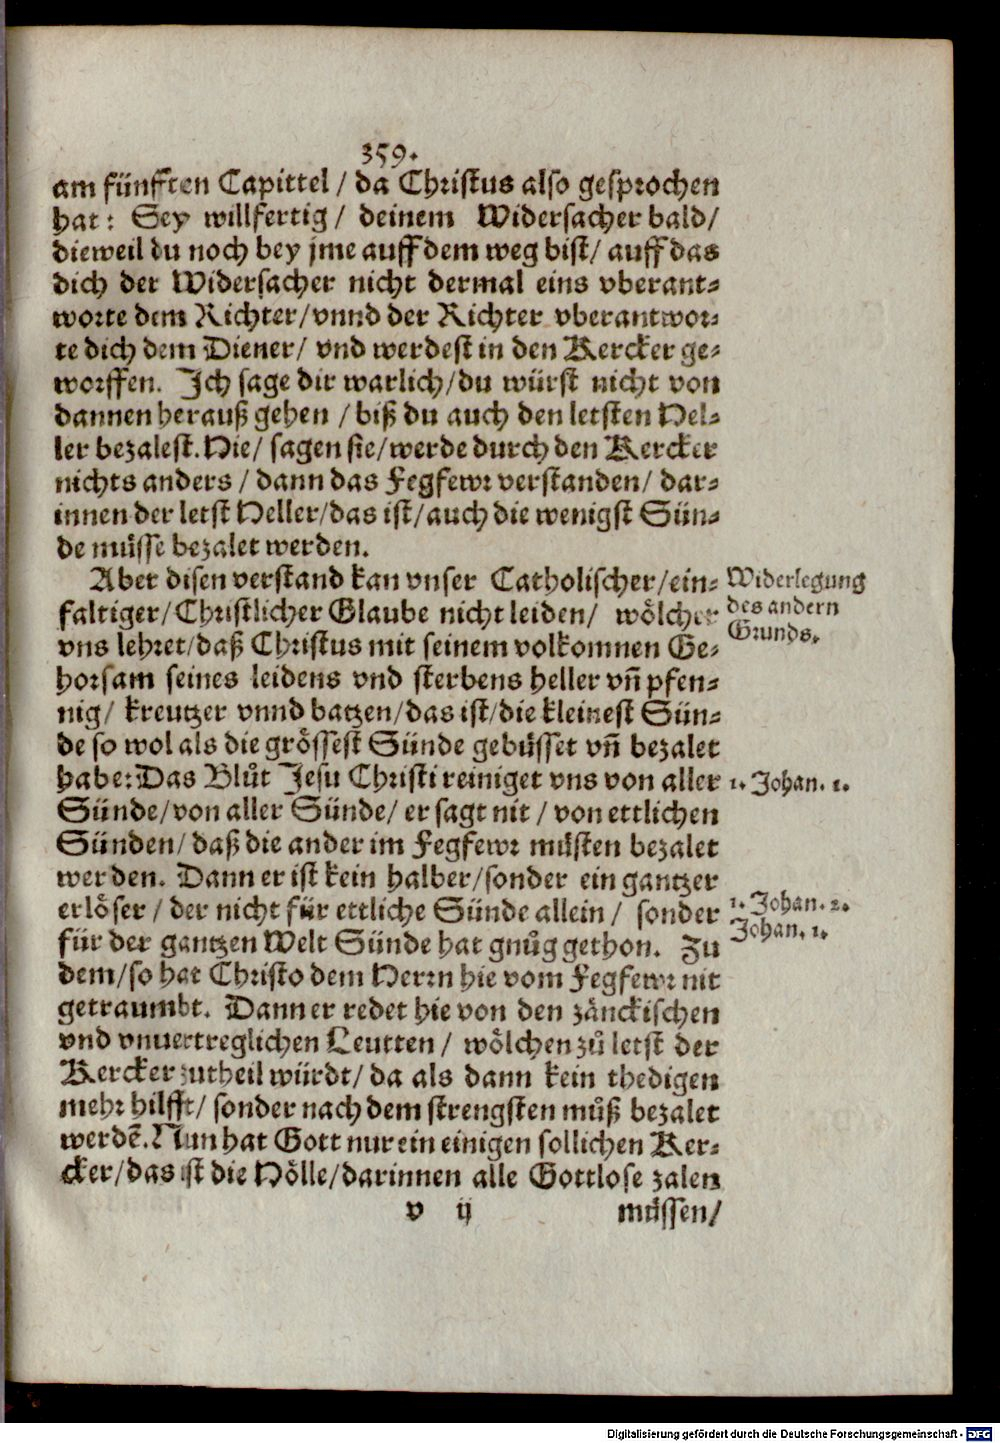 359.
am fünfften Capittel / da Christus also gesprochen
hat: Sey willfertig / deinem Widersacher bald /
dieweil du noch bey jme auff dem weg bist / auff das
dich der Widersacher nicht dermal eins vberant-
worte dem Richter / vnnd der Richter vberantwor-
te dich dem Diener / vnd werdest in den Kercker ge-
worffen. Jch sage dir warlich / du würst nicht von
dannen herauß gehen / biß du auch den letsten Hel-
ler bezalest. Hie / sagen sie / werde durch den Kercker
nichts anders / dann das Fegfewr verstanden / dar-
innen der letst Heller / das ist / auch die wenigst Sün-
de müsse bezalet werden.
Aber disen verstand kan vnser Catholischer / ein-
faltiger / Christlicher Glaube nicht leiden / wölcher
vns lehret / daß Christus mit seinem volkomnen Ge-
horsam seines leidens vnd sterbens heller vñ pfen-
nig / kreutzer vnnd batzen / das ist / die kleinest Sün-
de so wol als die grössest Sünde gebüsset vñ bezalet
habe: Das Blůt Jesu Christi reiniget vns von aller
Sünde / von aller Sünde / er sagt nit / von ettlichen
Sünden / daß die ander im Fegfewr müsten bezalet
werden. Dann er ist kein halber / sonder ein gantzer
erlöser / der nicht für ettliche Sünde allein / sonder
für der gantzen Welt Sünde hat gnůg gethon. Zu
dem / so hat Christo dem Herrn hie vom Fegfewr nit
getraumbt. Dann er redet hie von den zänckischen
vnd vnuertreglichen Leutten / wölchen zů letst der
Kercker zutheil würdt / da als dann kein thedigen
mehr hilfft / sonder nach dem strengsten můß bezalet
werdẽ. Nun hat Gott nur ein einigen sollichen Ker-
cker / das ist die Hölle / darinnen alle Gottlose zalen
v ij
müssen /
Widerlegung
des andern
Grunds.
1. Johan. 1.
1. Johan. 2.
Johan. 1.
Digitalisierung gefördert durch die Deutsche Forschungsgemeinschaft - DFG